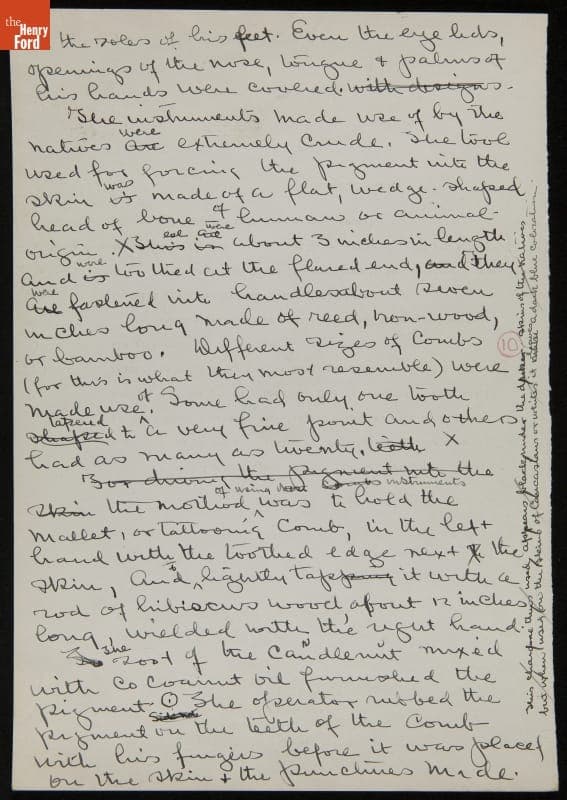 the Henry Ford
the soles of his feet. Even the eye lids,
openings of the nose, tongue & palms of
his hands were covered. with designs.
The instruments made use of by the
natives are were extremely crude. The tool
used for forcing the pigment into the
skin is was made of a flat, wedge-shaped
head of bone of human or animal
origin. X This is are were about 3 inches in length
and is were toothed at the flared end, and they
are were fastened into handles about seven
inches long made of reed, iron-wood,
or bamboo. Different sizes of Combs
(for this is what they most resemble) were
made use of. Some had only one tooth
shaped tapered to a very fine point and others
had as many as twenty. teeth X
For driving the pigment into the
skin the method of using instruments was to hold the
mallet, or tattooing Comb, in the left
hand with the toothed edge next to the
skin, and to lightly tapping it with a
rod of hibiscus wood about 12 inches
long, wielded with the right hand.
The soot of the Candlenut mixed
with Cocoanut oil furnished the
pigment. The operator rubbed the
pigment on the teeth of the Comb
with his fingers before it was placed
on the skin & the punctures made.
10
This charcoal thus used appears black under the darker skins of the natives
but when used on the skins of Caucasians or whites it leaves a dark blue coloration.